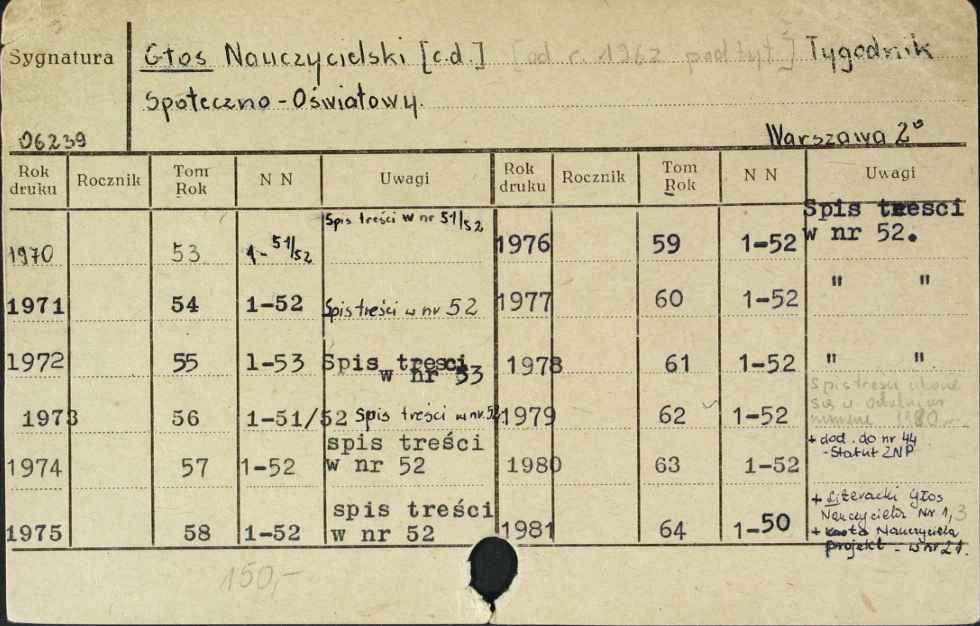 Sygnatura
Głos Nauczycielski [c.d.] [od r. 1962 podtyt.] Tygodnik
Społeczno-Oświatowy.
06239
Warszawa 2°
Rok druku Rocznik Tom Rok N N Uwagi Rok druku Rocznik Tom Rok N N Uwagi
1970 53 1-51/52 Spis treści w nr 51/52 1976 59 1-52 Spis tresci w nr 52.
1971 54 1-52 Spis treści w nr 52 1977 60 1-52 " "
1972 55 1-53 Spis tresci w nr 53 1978 61 1-52 " "
1973 56 1-51/52 Spis treści w nr 52. 1979 62 1-52 Spis treści
1974 57 1-52 spis treści w nr 52 1980 63 1-52 + dod. do nr 44 - Statut ZNP
1975 58 1-52 spis treści w nr 52 1981 64 1-50 + Literacki Głos Nauczyciela Nr 1, 3
+ karta Nauczyciela
projekt - w nr 21.
150,-